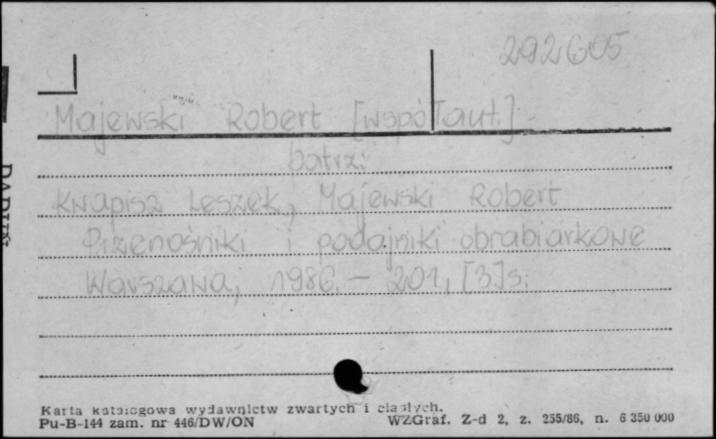 292605
Majewski Robert [współaut.]
patrz:
Kwapisz Leszek, Majewski Robert
Przenośniki i podajniki obrabiarkowe
Warszawa, 1986. - 201, [3] s.
Karta katalogowa wydawnictw zwartych i ciągłych.
Pu-B-144 zam. nr 446/DW/ON
WZGraf. Z-d 2, z. 255/86, n. 6 350 000